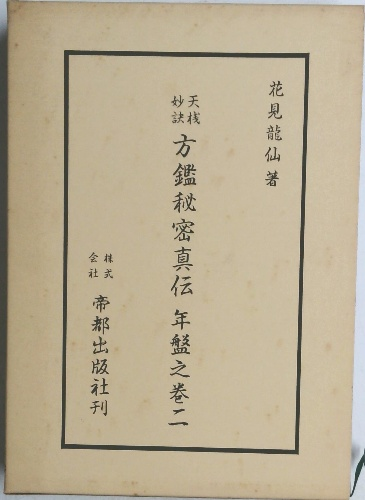 花見龍仙著
天棧
妙訣
方鑑秘密真伝 年盤之巻二
株式
会社
帝都出版社刊